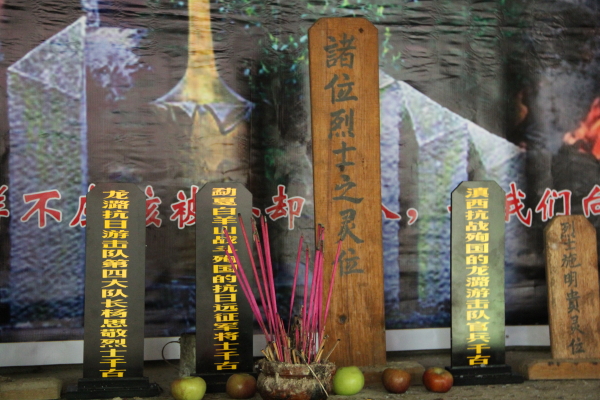 龙潞抗日游击队第四大队长杨思敬烈士千古
勐戛白羊山战斗殉国的抗日远征军将士千古
諸位烈士之灵位
滇西抗战殉国的龙潞游击队官兵千古
烈士施明貴灵位
不应该被
却
人,
我们向